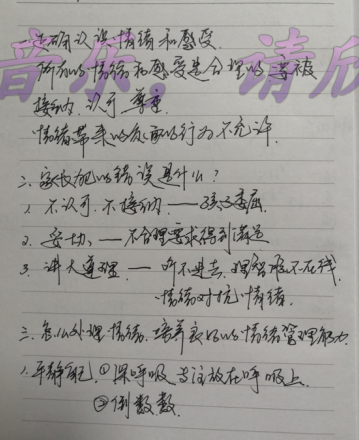 一、正确认识情绪和感受.
所有的情绪和感受是合理的,要被
接纳、认可、尊重
情绪带来的负面的行为不允许.
二、家长犯的错误是什么?
1. 不认可、不接纳——孩子委屈.
2. 妥协、——不合理要求得到满足
3. 讲大道理——听不进去, 理智脑不在线.
情绪对抗情绪.
三、怎么处理情绪、培养良好的情绪管理能力.
1. 平静自己 ①深呼吸 专注放在呼吸上.
②倒数数.
音乐。请欣